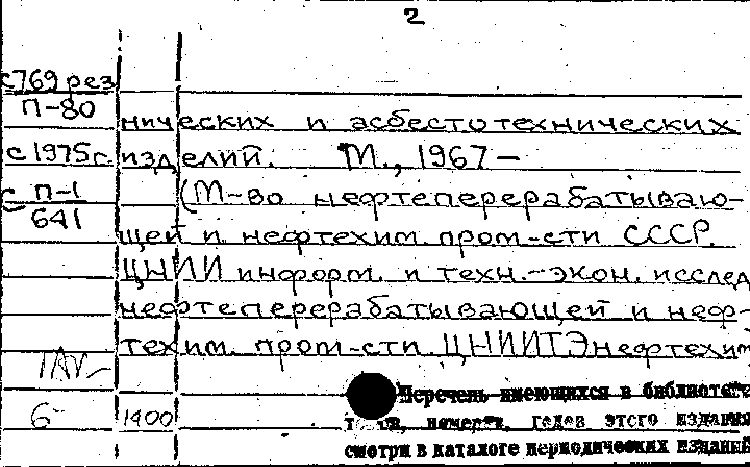 2
с769 рез
П-80
нических и асбестотехнических
с 1975г. изделий. М., 1967 –
с П-1
641
(М-во нефтеперерабатываю-
щей и нефтехим. пром-сти СССР.
ЦНИИ информ. и техн.-экон. исслед
нефтеперерабатывающей и неф-
техим. пром-сти ЦНИИТЭнефтехим
Перечень имеющихся в библиотеке
6 1400
номеров, годов этого издания
смотри в каталоге периодических изданий